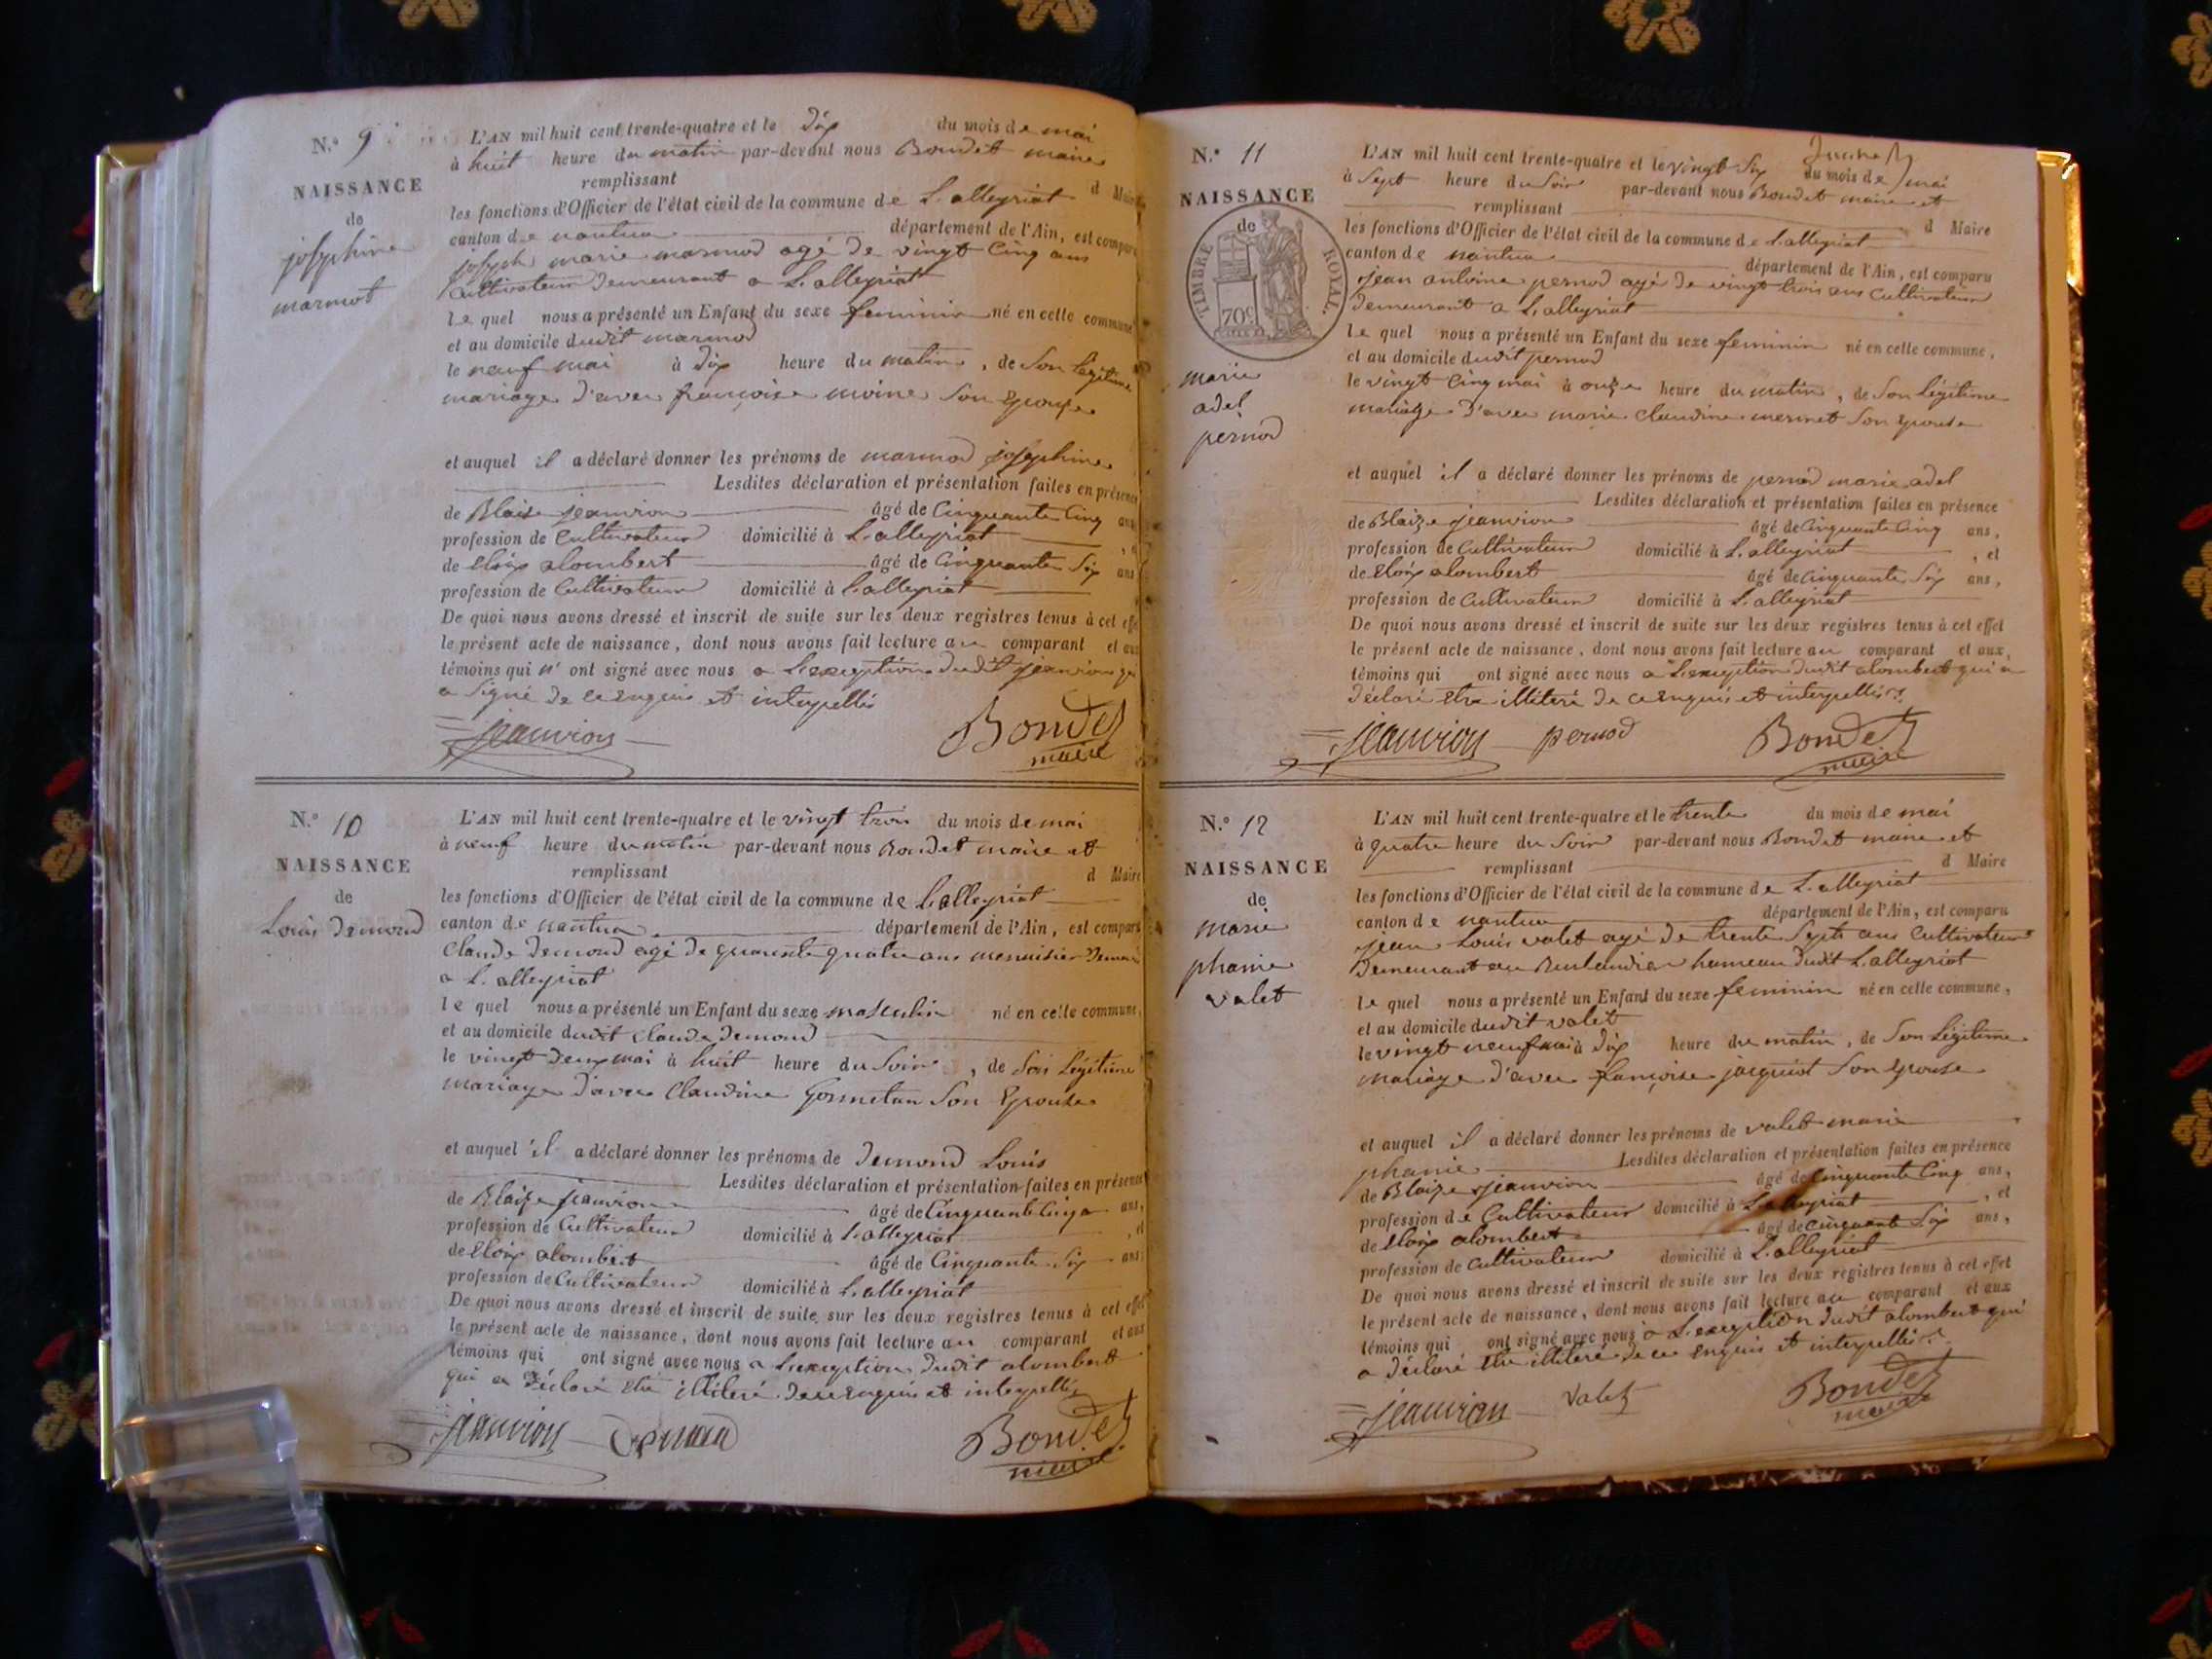 N.º 9
NAISSANCE
de
josephine
marmot
L'AN mil huit cent trente-quatre et le dix du mois de mai
à huit heure du matin par-devant nous Bondet maire
remplissant d Maire
les fonctions d'Officier de l'état civil de la commune de L'alleyriat
canton de nantua département de l'Ain, est comparu
joseph marie marmod agé de vingt Cinq ans
Cultivateur demeurant a L'alleyriat
le quel nous a présenté un Enfant du sexe feminin né en cette commune
et au domicile dudit marmod
le neuf mai à dix heure du matin, de Son Légitime
mariage d'avec françoise moine Son Epouse
et auquel il a déclaré donner les prénoms de marmod josephine
Lesdites déclaration et présentation faites en présence
de Blaise jeanvion âgé de Cinquante Cinq ans
profession de Cultivateur domicilié à L'alleyriat
de Eloix alombert âgé de Cinquante Six ans
profession de Cultivateur domicilié à L'alleyriat
De quoi nous avons dressé et inscrit de suite sur les deux registres tenus à cet effe
le présent acte de naissance, dont nous avons fait lecture au comparant et aux
témoins qui n' ont signé avec nous a L'exception dudit jeanvion qui
a Signé de ce Enquis et interpellés
jeanvion Bondet
maire
N.º 10
NAISSANCE
de
Louis Demond
L'AN mil huit cent trente-quatre et le vingt trois du mois de mai
à neuf heure du matin par-devant nous Bondet maire et
remplissant d Maire
les fonctions d'Officier de l'état civil de la commune de L'alleyriat
canton de nantua département de l'Ain, est comparu
Claude Demond agé de quarente quatre ans menuisier Demeu
a L'alleyriat
le quel nous a présenté un Enfant du sexe masculin né en cette commune,
et au domicile dudit Claude Demond
le vingt Deux mai à huit heure du Soir, de Son Légitime
mariage d'avec Claudine Gonnetan Son Epouse
et auquel il a déclaré donner les prénoms de Demond Louis
Lesdites déclaration et présentation faites en présence
de Blaize jeanvion âgé de Cinquante Cinq ans,
profession de Cultivateur domicilié à L'alleyriat, et
de Eloix alombert âgé de Cinquante Six ans
profession de Cultivateur domicilié à L'alleyriat
De quoi nous avons dressé et inscrit de suite sur les deux registres tenus à cet effet
le présent acte de naissance, dont nous avons fait lecture au comparant et aux
témoins qui ont signé avec nous a L'exception dudit alombert
qui a Déclaré Etre illiteré de ce Enquis et interpellés
jeanvion Demond Bondet
maire
N.º 11
NAISSANCE
de
TIMBRE ROYAL
70c
marie
adel
pernod
L'AN mil huit cent trente-quatre et le vingt Six du mois de mai
à Sept heure du Soir par-devant nous Bondet maire et
remplissant d Maire
les fonctions d'Officier de l'état civil de la commune de L'alleyriat
canton de nantua département de l'Ain, est comparu
jean antoine pernod agé de vingt trois ans Cultivateur
demeurant a L'alleyriat
le quel nous a présenté un Enfant du sexe feminin né en cette commune,
et au domicile dudit pernod
le vingt Cinq mai à onze heure du matin, de Son Légitime
mariage d'avec marie Claudine mermet Son Epouse
et auquel il a déclaré donner les prénoms de pernod marie adel
Lesdites déclaration et présentation faites en présence
de Blaize jeanvion âgé de Cinquante Cinq ans,
profession de Cultivateur domicilié à L'alleyriat, et
de Eloix alombert âgé de Cinquante Six ans,
profession de Cultivateur domicilié à L'alleyriat
De quoi nous avons dressé et inscrit de suite sur les deux registres tenus à cet effet
le présent acte de naissance, dont nous avons fait lecture au comparant et aux,
témoins qui ont signé avec nous a L'exception dudit alombert qui a
Déclaré Etre illiteré de ce Enquis et interpellés
jeanvion pernod Bondet
maire
N.º 12
NAISSANCE
de
marie
phanie
valet
L'AN mil huit cent trente-quatre et le trente du mois de mai
à quatre heure du Soir par-devant nous Bondet maire et
remplissant d Maire
les fonctions d'Officier de l'état civil de la commune de L'alleyriat
canton de nantua département de l'Ain, est comparu
jean Louis valet agé de trente Sept ans Cultivateur
Demeurant au hameau dudit L'alleyriat
le quel nous a présenté un Enfant du sexe feminin né en cette commune,
et au domicile dudit valet
le vingt neuf mai à dix heure du matin, de Son Légitime
mariage d'avec françoise jacquiot Son Epouse
et auquel il a déclaré donner les prénoms de valet marie
phanie Lesdites déclaration et présentation faites en présence
de Blaize jeanvion âgé de Cinquante Cinq ans,
profession de Cultivateur domicilié à L'alleyriat, et
de Eloix alombert âgé de Cinquante Six ans,
profession de Cultivateur domicilié à L'alleyriat
De quoi nous avons dressé et inscrit de suite sur les deux registres tenus à cet effet
le présent acte de naissance, dont nous avons fait lecture au comparant et aux
témoins qui ont signé avec nous a L'exception dudit alombert qui
a Déclaré Etre illiteré de ce Enquis et interpellés
jeanvion Valet Bondet
maire